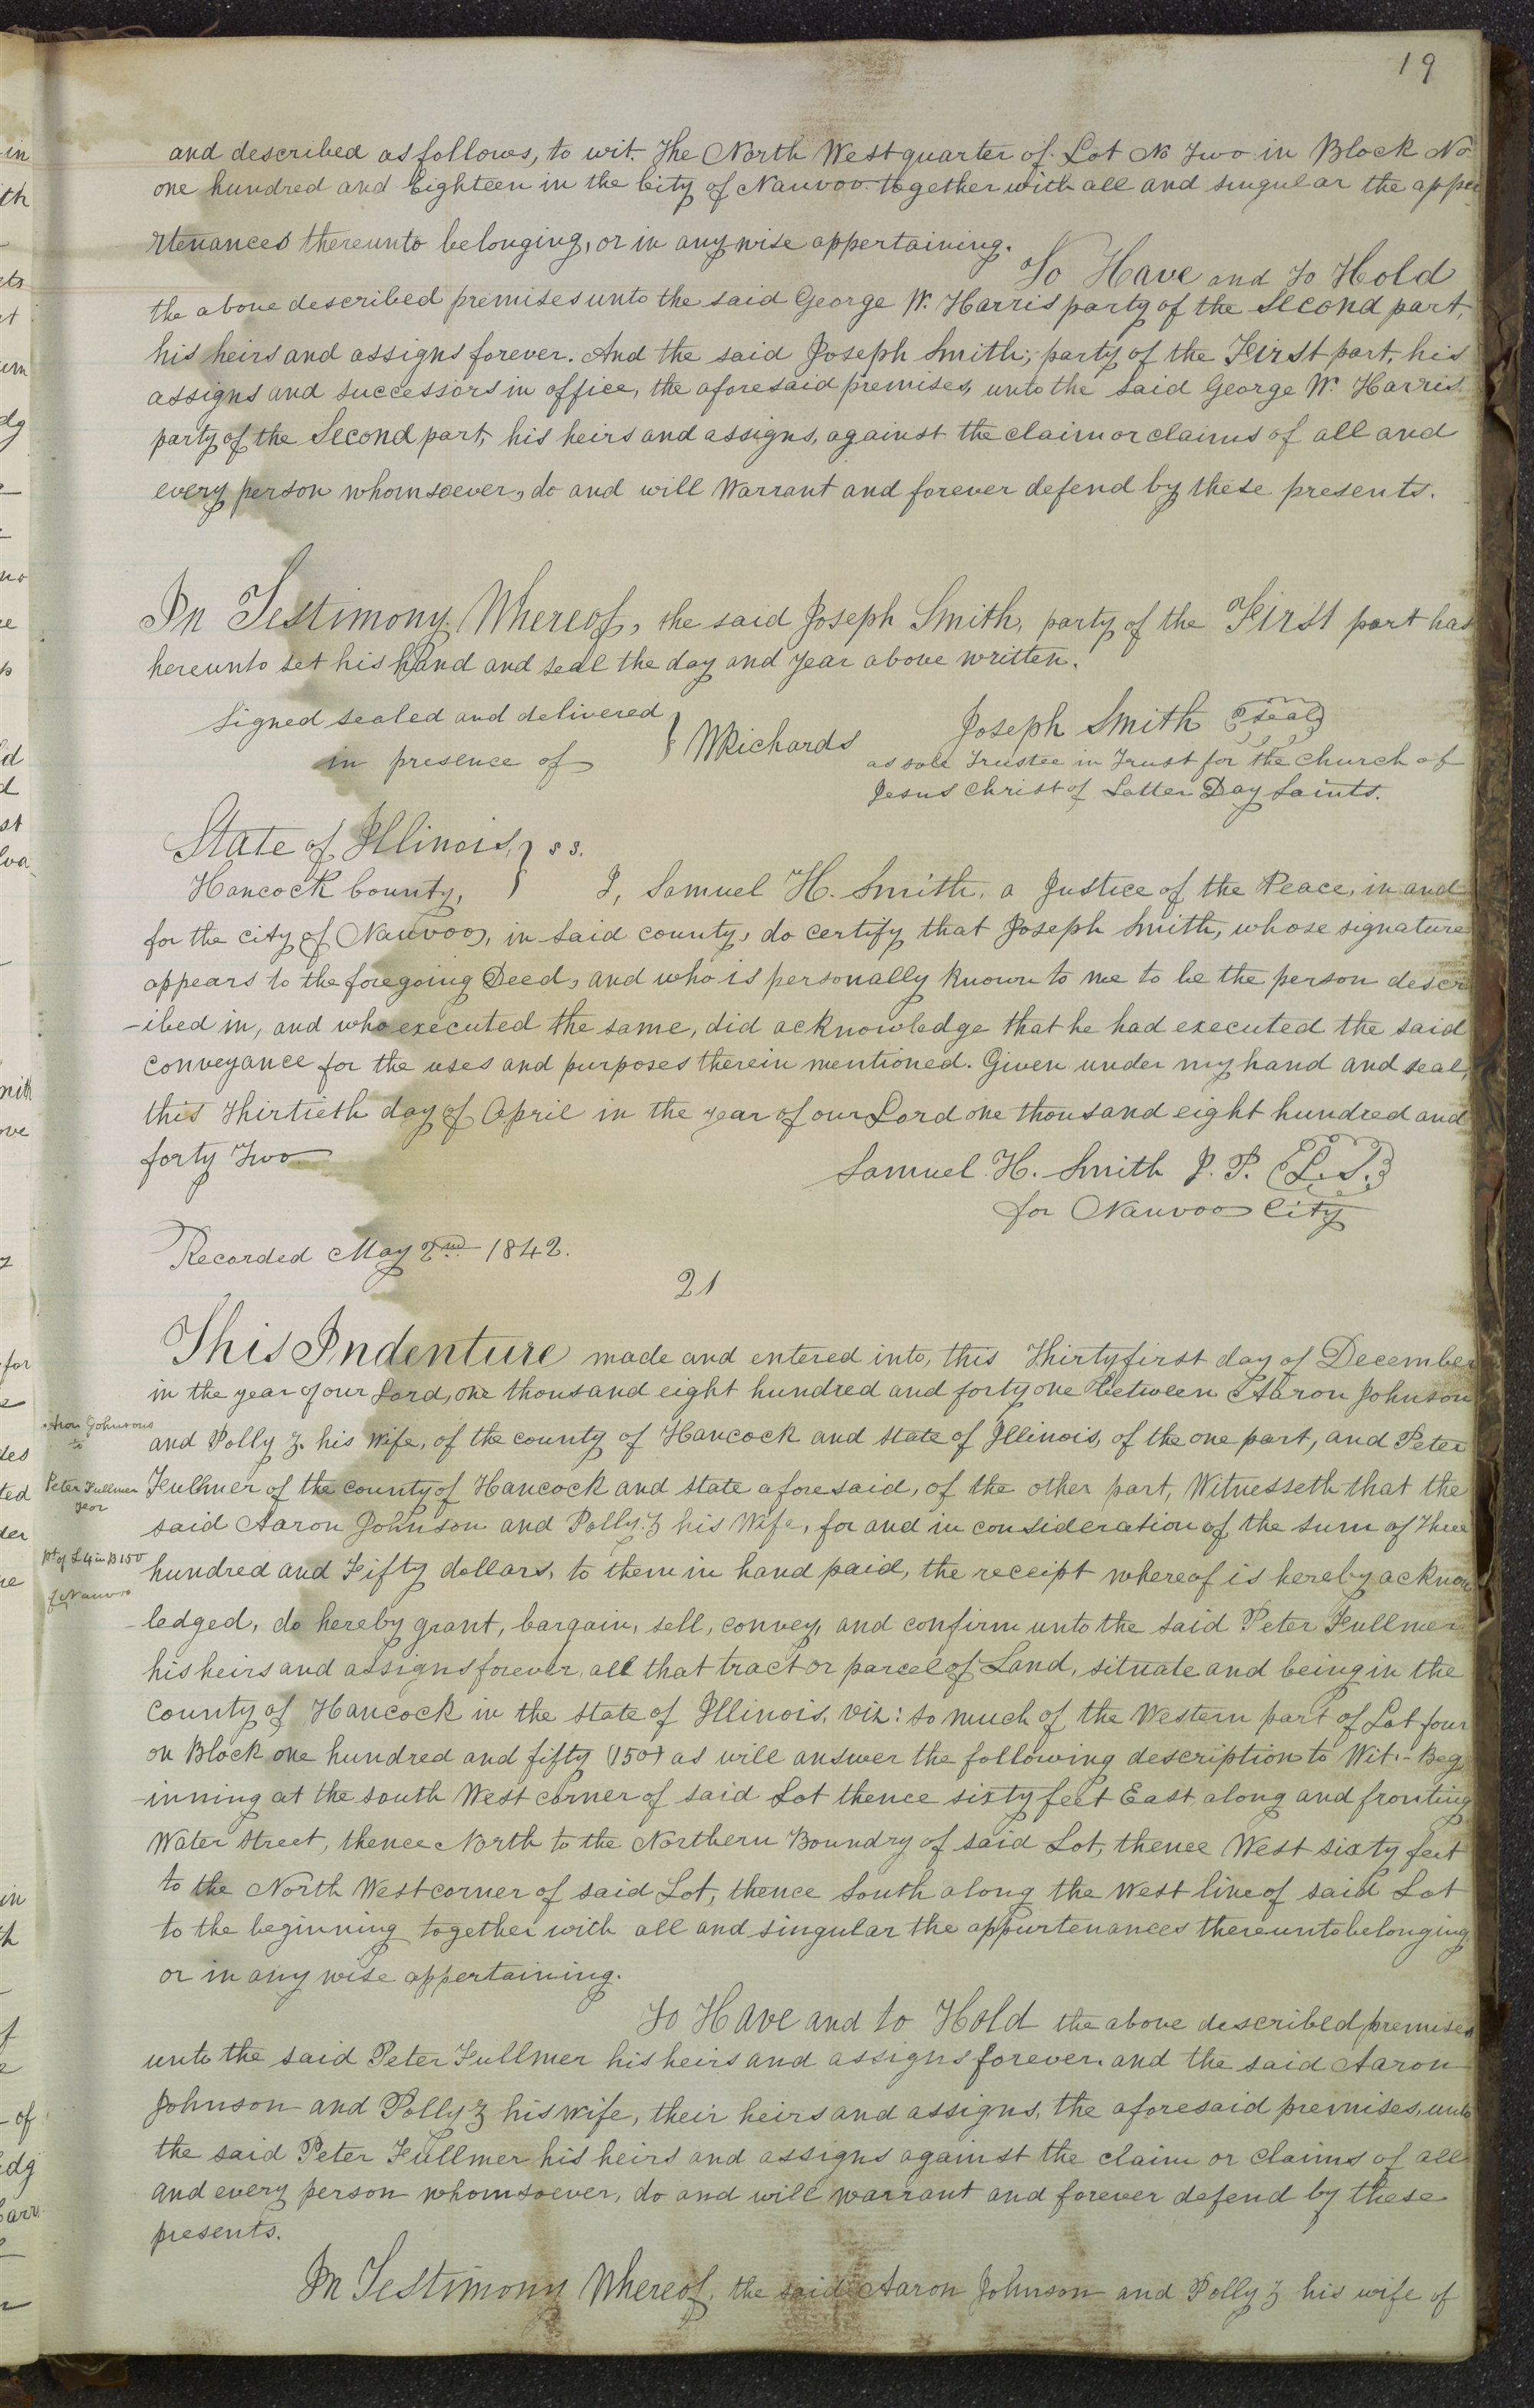 19
and described as follows, to wit. The North West quarter of Lot No Two in Block No
one hundred and Eighteen in the City of Nauvoo together with all and singular the appu
rtenances thereunto belonging, or in any wise appertaining.
To Have and To Hold
the above described premises unto the said George W. Harris party of the Second part,
his heirs and assigns forever. And the said Joseph Smith, party of the First part, his
assigns and successors in office, the aforesaid premises, unto the said George W. Harris
party of the Second part, his heirs and assigns, against the claim or claims of all and
every person whomsoever, do and will Warrant and forever defend by these presents.
In Testimony Whereof, the said Joseph Smith, party of the First part has
hereunto set his hand and seal the day and year above written.
Signed sealed and delivered
in presence of
WRichards
Joseph Smith seal
as sole Trustee in Trust for the Church of
Jesus Christ of Latter Day Saints.
State of Illinois, } s s.
Hancock County,
I, Samuel H. Smith, a Justice of the Peace, in and
for the city of Nauvoo, in said county, do certify that Joseph Smith, whose signature
appears to the foregoing Deed, and who is personally known to me to be the person descr
-ibed in, and who executed the same, did acknowledge that he had executed the said
conveyance for the uses and purposes therein mentioned. Given under my hand and seal,
this Thirtieth day of April in the year of our Lord one thousand eight hundred and
forty Two
Samuel H. Smith J. P. (L.S.)
for Nauvoo City
Recorded May 2nd 1842.
21
This Indenture made and entered into, this Thirtyfirst day of December
in the year of our Lord, one thousand eight hundred and forty one between Aaron Johnson
Aron Johnsons
to
and Polly Z. his Wife, of the county of Hancock and State of Illinois, of the one part, and Peter
Peter Fullmer
Fullmer of the county of Hancock and State aforesaid, of the other part, Witnesseth that the
said Aaron Johnson and Polly Z his Wife, for and in consideration of the sum of Three
pt of L 4 in B 150
of Nauvoo
hundred and Fifty dollars, to them in hand paid, the receipt whereof is hereby acknow
-ledged, do hereby grant, bargain, sell, convey, and confirm unto the said Peter Fullmer
his heirs and assigns forever, all that tract or parcel of Land, situate and being in the
County of Hancock in the State of Illinois, viz: So much of the Western part of Lot four
on Block one hundred and fifty (150) as will answer the following description to Wit:- Beg
-inning at the South West corner of said Lot thence sixty feet East along and fronting
Water Street, thence North to the Northern Boundry of said Lot, thence West sixty feet
to the North West corner of said Lot, thence South along the West line of said Lot
to the beginning together with all and singular the appurtenances thereunto belonging,
or in any wise appertaining.
To Have and to Hold the above described premises
unto the said Peter Fullmer his heirs and assigns forever. and the said Aaron
Johnson and Polly Z his wife, their heirs and assigns, the aforesaid premises, unto
the said Peter Fullmer his heirs and assigns against the claim or claims of all
and every person whomsoever, do and will warrant and forever defend by these
presents.
In Testimony Whereof, the said Aaron Johnson and Polly Z his wife of